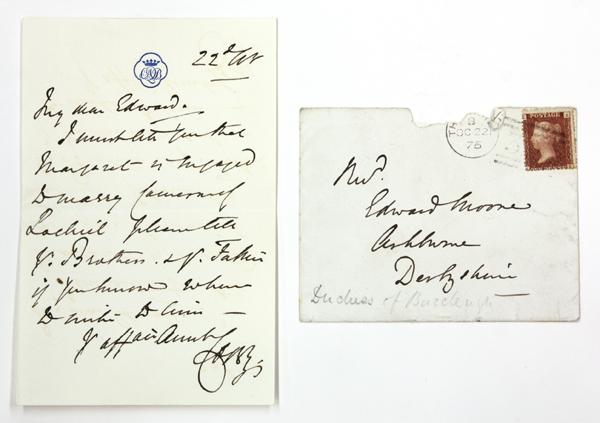 22d Oct
My dear Edward.
I must tell you that
Margaret is engaged
to marry Cameron of
Lochiel please tell
yr. Brothers. & yr. Father
if you know where
to write to him —
yr affec Aunt
TH
B
OC 22
75
POSTAGE
Revd.
Edward Moore
Ashburne
Derbyshire
Duchess of Buccleugh